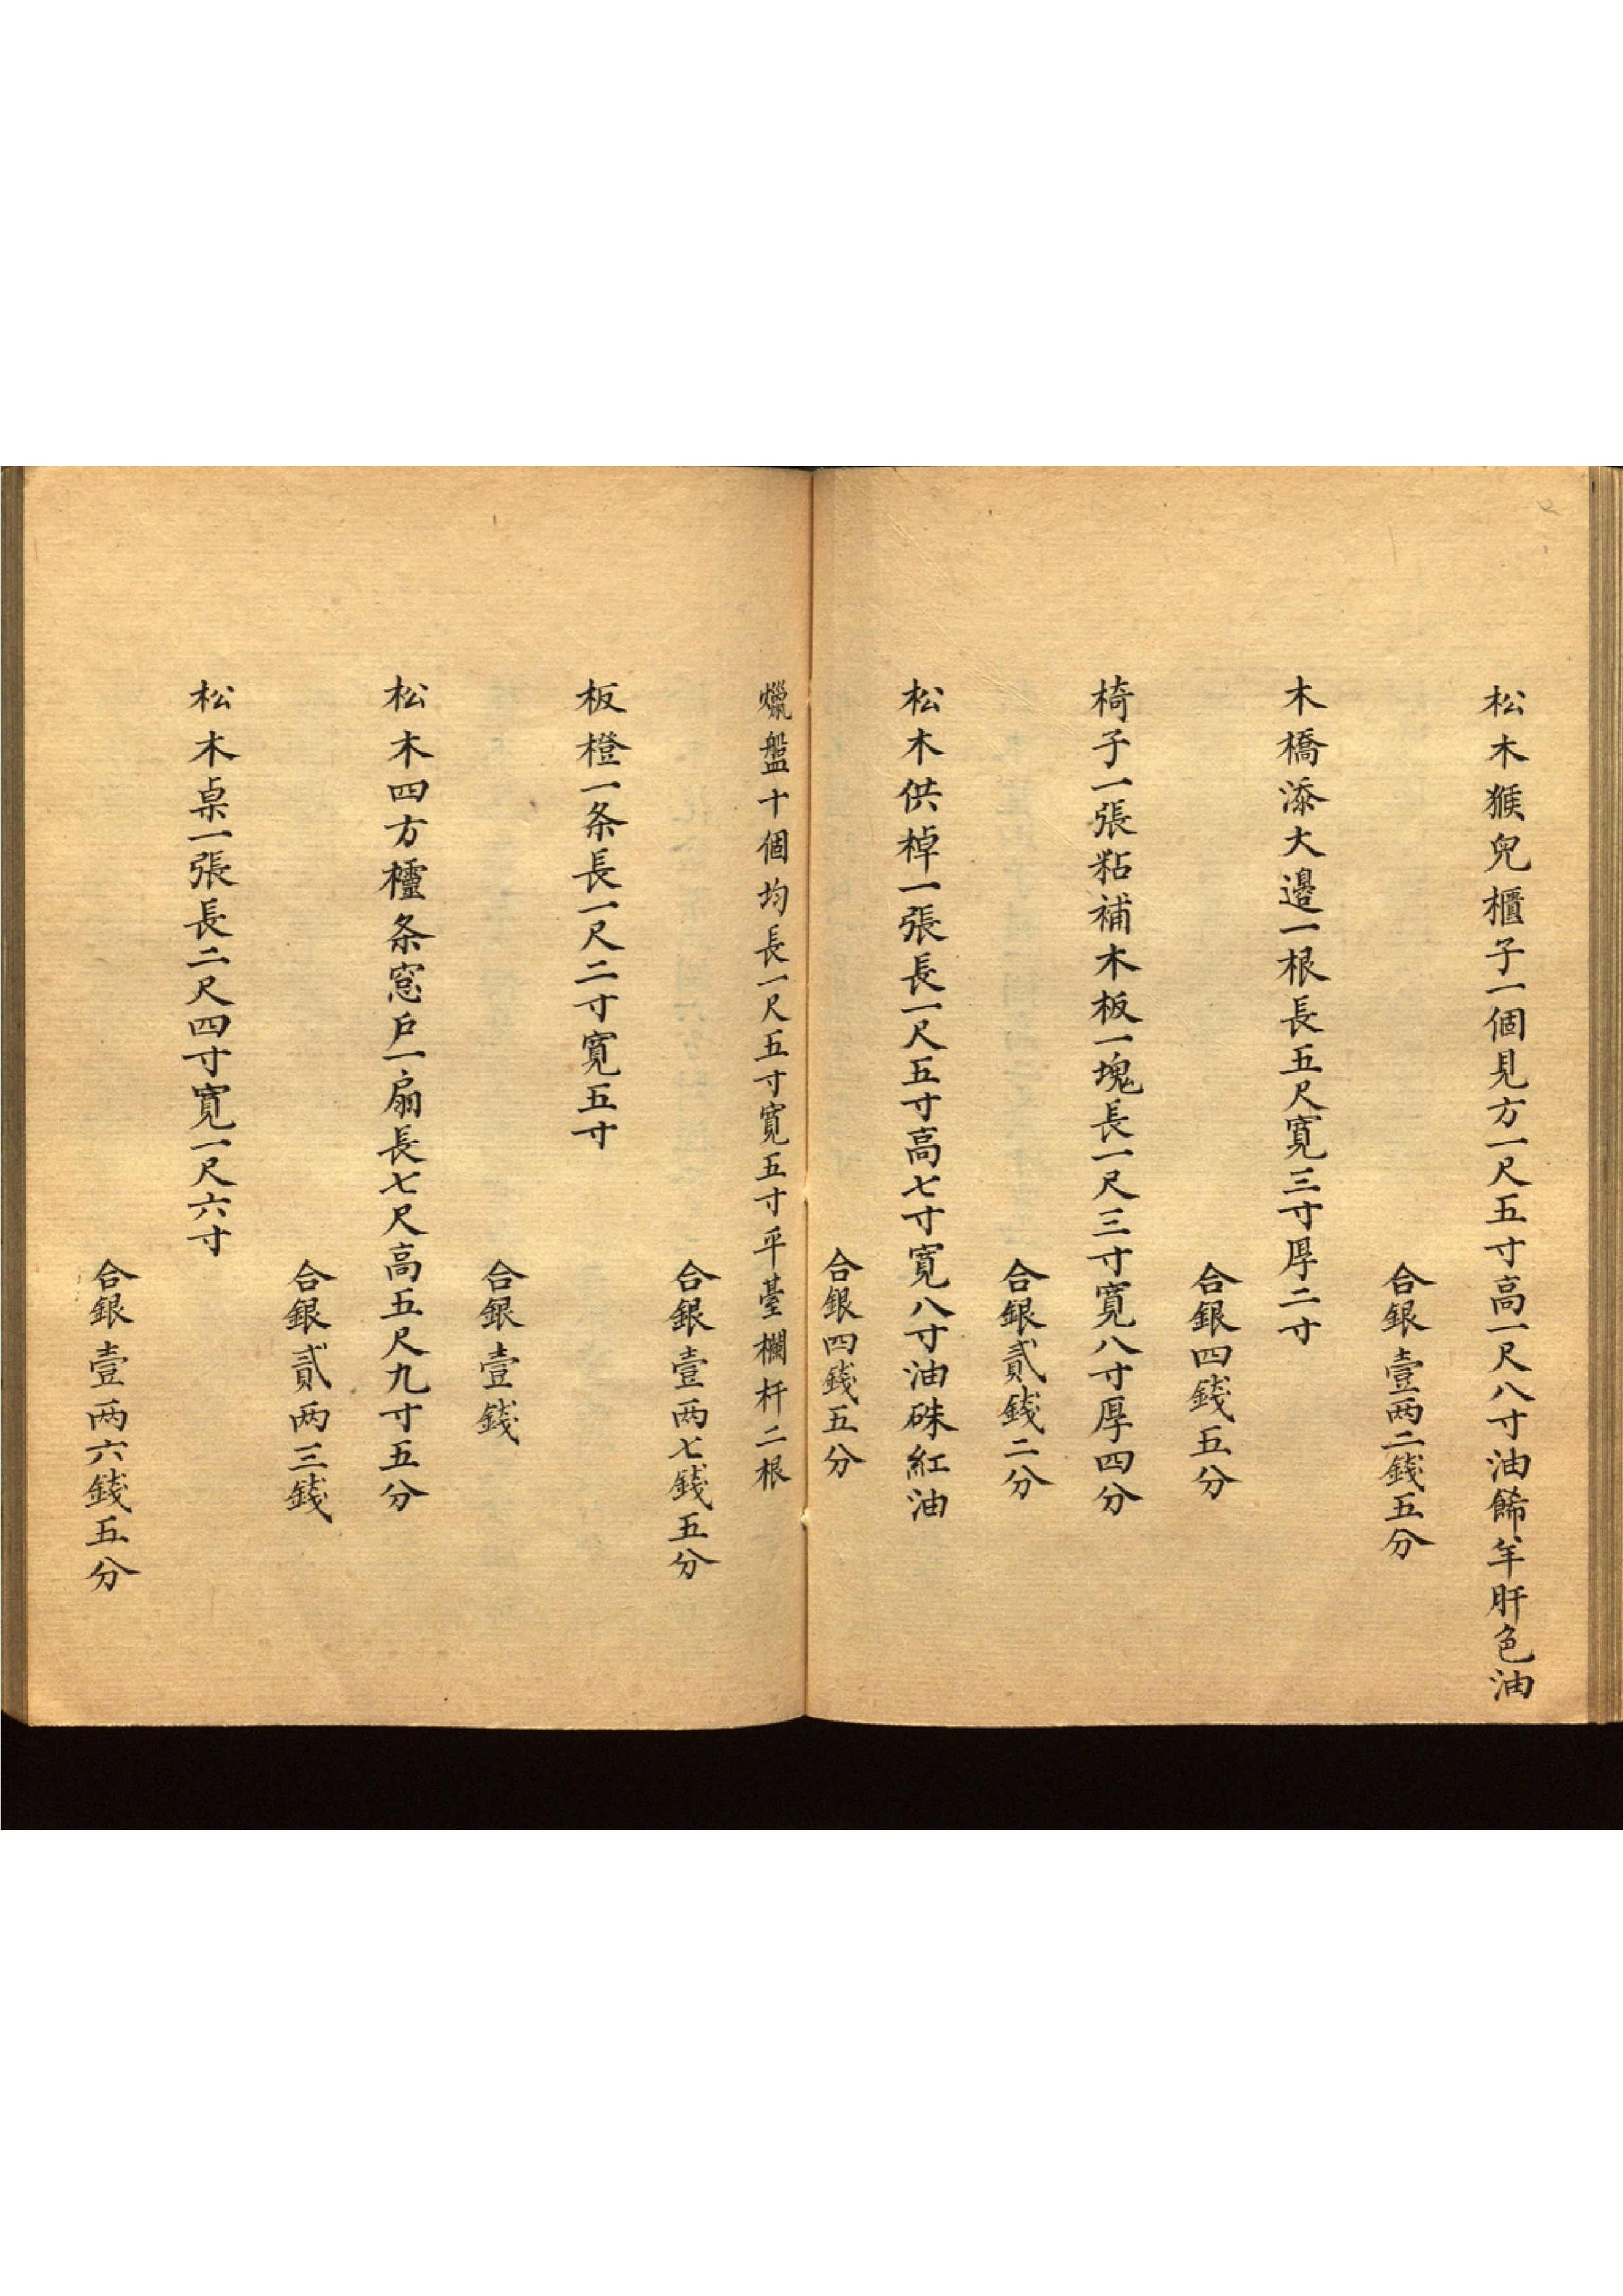 松木猴兒櫃子一個見方一尺五寸高一尺八寸油餙羊肝色油
合銀壹两二錢五分
木橋添大邊一根長五尺寬三寸厚二寸
合銀四錢五分
椅子一張粘補木板一塊長一尺三寸寬八寸厚四分
合銀貳錢二分
松木供棹一張長一尺五寸高七寸寬八寸油硃紅油
合銀四錢五分
蠟盤十個均長一尺五寸寬五寸平臺欄杆二根
合銀壹两七錢五分
板橙一条長一尺二寸寬五寸
合銀壹錢
松木四方櫺条窓户一扇長七尺高五尺九寸五分
合銀貳两三錢
松木桌一張長二尺四寸寬一尺六寸
合銀壹两六錢五分